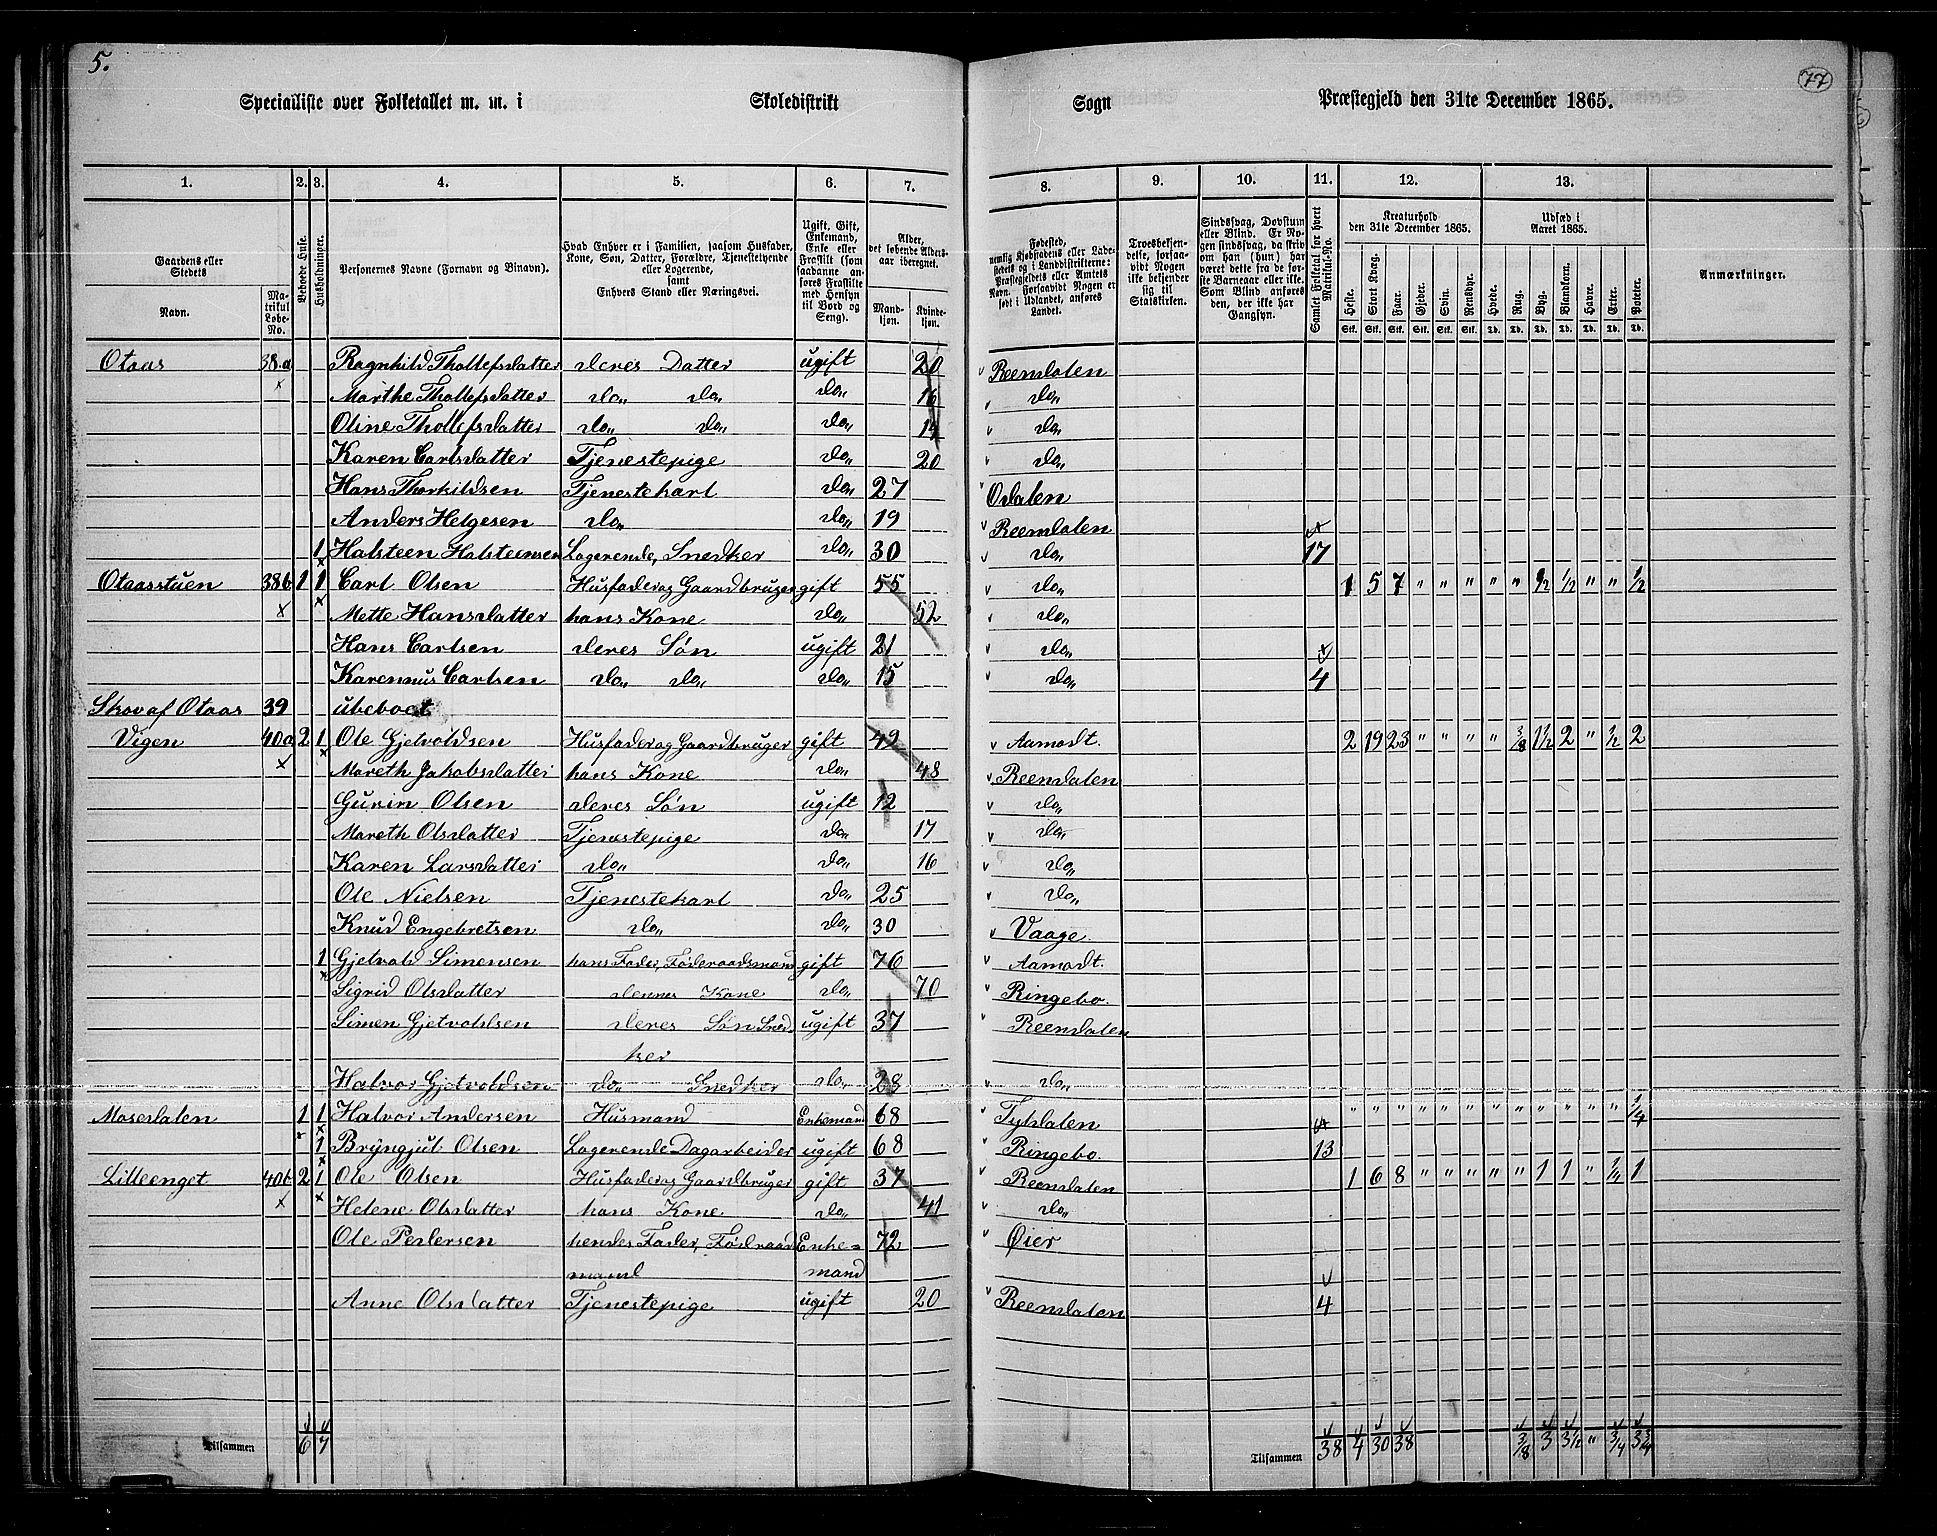 5.
77
Specialliste over Folketallet m. m. i Skoledistrikt Sogn Præstegjeld den 31te December 1865.
1. 2. 3. 4. 5. 6. 7. 8. 9. 10. 11. 12. 13.
Gaardens eller Stedets Navn. Matrikul Løbe-No.
Beboede Huse.
Husholdninger.
Personernes Navne (Fornavn og Binavn).
Hvad Enhver er i Familien, saasom Husfader, Kone, Søn, Datter, Forældre, Tjenestetyende eller Logerende, samt Enhvers Stand eller Næringsvei.
Ugift, Gift, Enkemand, Enke eller Fraskilt (som saadanne anføres Fraskilte med Hensyn til Bord og Seng).
Alder, det løbende Alders-aar iberegnet. Mand-kjøn. Kvinde-kjøn.
Fødested, nemlig Kjøbstadens eller Ladestedets og i Landdistrikterne: Præstegjeldets eller Amtets Navn. Forsaavidt Nogen er født i Udlandet, anføres Landet.
Troesbekjendelse, forsaavidt Nogen ikke bekjender sig til Statskirken.
Sindssvag, Døvstum eller Blind. Er Nogen sindssvag, da skriv om han (hun) har været dette fra de første Barneaar eller ikke. Som Blind anføres den, der ikke har Gangsyn.
Samlet Folketal for hvert Matrikul-No.
Kreaturhold den 31te December 1865. Heste. Stort Kvæg. Faar. Gjeder. Svin. Rensdyr.
Udsæd i Aaret 1865. Hvede. Rug. Byg. Blandkorn. Havre. Erter. Poteter.
Stk. Stk. Stk. Stk. Stk. Stk. Td. Td. Td. Td. Td. Td. Td.
Anmærkninger.
Otaas 38a Ragnhild Thollefsdatter deres Datter ugift 20 Reendalen
Marthe Thollefsdatter do„ do„ do„ 16 do„
Oline Thollefsdatter do„ do„ do„ 14 do„
Karen Carlsdatter Tjenestepige do„ 20 do„
Hans Thorkildsen Tjenestekarl do„ 27 Odalen
Anders Helgesen do„ do„ 19 Reendalen
1 Halsteen Halsteensen Logerende, Snedker do„ 30 do„ 17
Otaasstuen 38b 1 1 Carl Olsen Husfader og Gaardbruger gift 55 do„ 1 5 7 „ „ „ „ „ 1/2 1/2 „ „ 1/2
Mette Hansdatter hans Kone do„ 52 do„
Hans Carlsen deres Søn ugift 21 do„
Karennus Carlsen do„ do„ do„ 15 do„ 4
Skov af Otaas 39 ubeboet
Vigen 40a 2 1 Ole Gjetvoldsen Husfader og Gaardbruger gift 49 Aamodt. 2 19 23 „ „ „ „ 3/8 1 1/2 2 „ 1/2 2
Mareth Jakobsdatter hans Kone do„ 48 Reendalen
Guvin Olsen deres Søn ugift 12 do„
Mareth Olsdatter Tjenestepige do„ 17 do„
Karen Larsdatter do„ do„ 16 do„
Ole Nielsen Tjenestekarl do„ 25 do„
Knud Engebretsen do„ do„ 30 Vaage.
1 Gjetvold Simensen hans Fader, Føderaadsmand gift 76 Aamodt.
Sigrid Olsdatter dennes Kone do„ 70 Ringebo.
Simen Gjetvoldsen deres Søn Sned- ugift 37 Reendalen
ker
Halvor Gjetvoldsen do„ Snedker do„ 28 do„
Mosedalen 1 1 Halvor Andersen Husmand Enkemand 68 Tyldalen „ „ „ „ „ „ „ „ „ „ „ „ 1/4
1 Bryngjul Olsen Logerende Dagarbeider ugift 68 Ringebo. 13
Lilleenget 40b 2 1 Ole Olsen Husfader og Gaardbruger gift 37 Reendalen 1 6 8 „ „ „ „ „ 1 1 „ 1/4 1
Helene Olsdatter hans Kone do„ 41 do„
Ole Pedersen hendes Fader, Føderaads Enke- 72 Øier
mand mand
Anne Olsdatter Tjenestepige ugift 20 Reendalen 4
Tilsammen 6 7 Tilsammen 38 4 30 38 3/8 3 3 1/2 „ 3/4 3 3/4